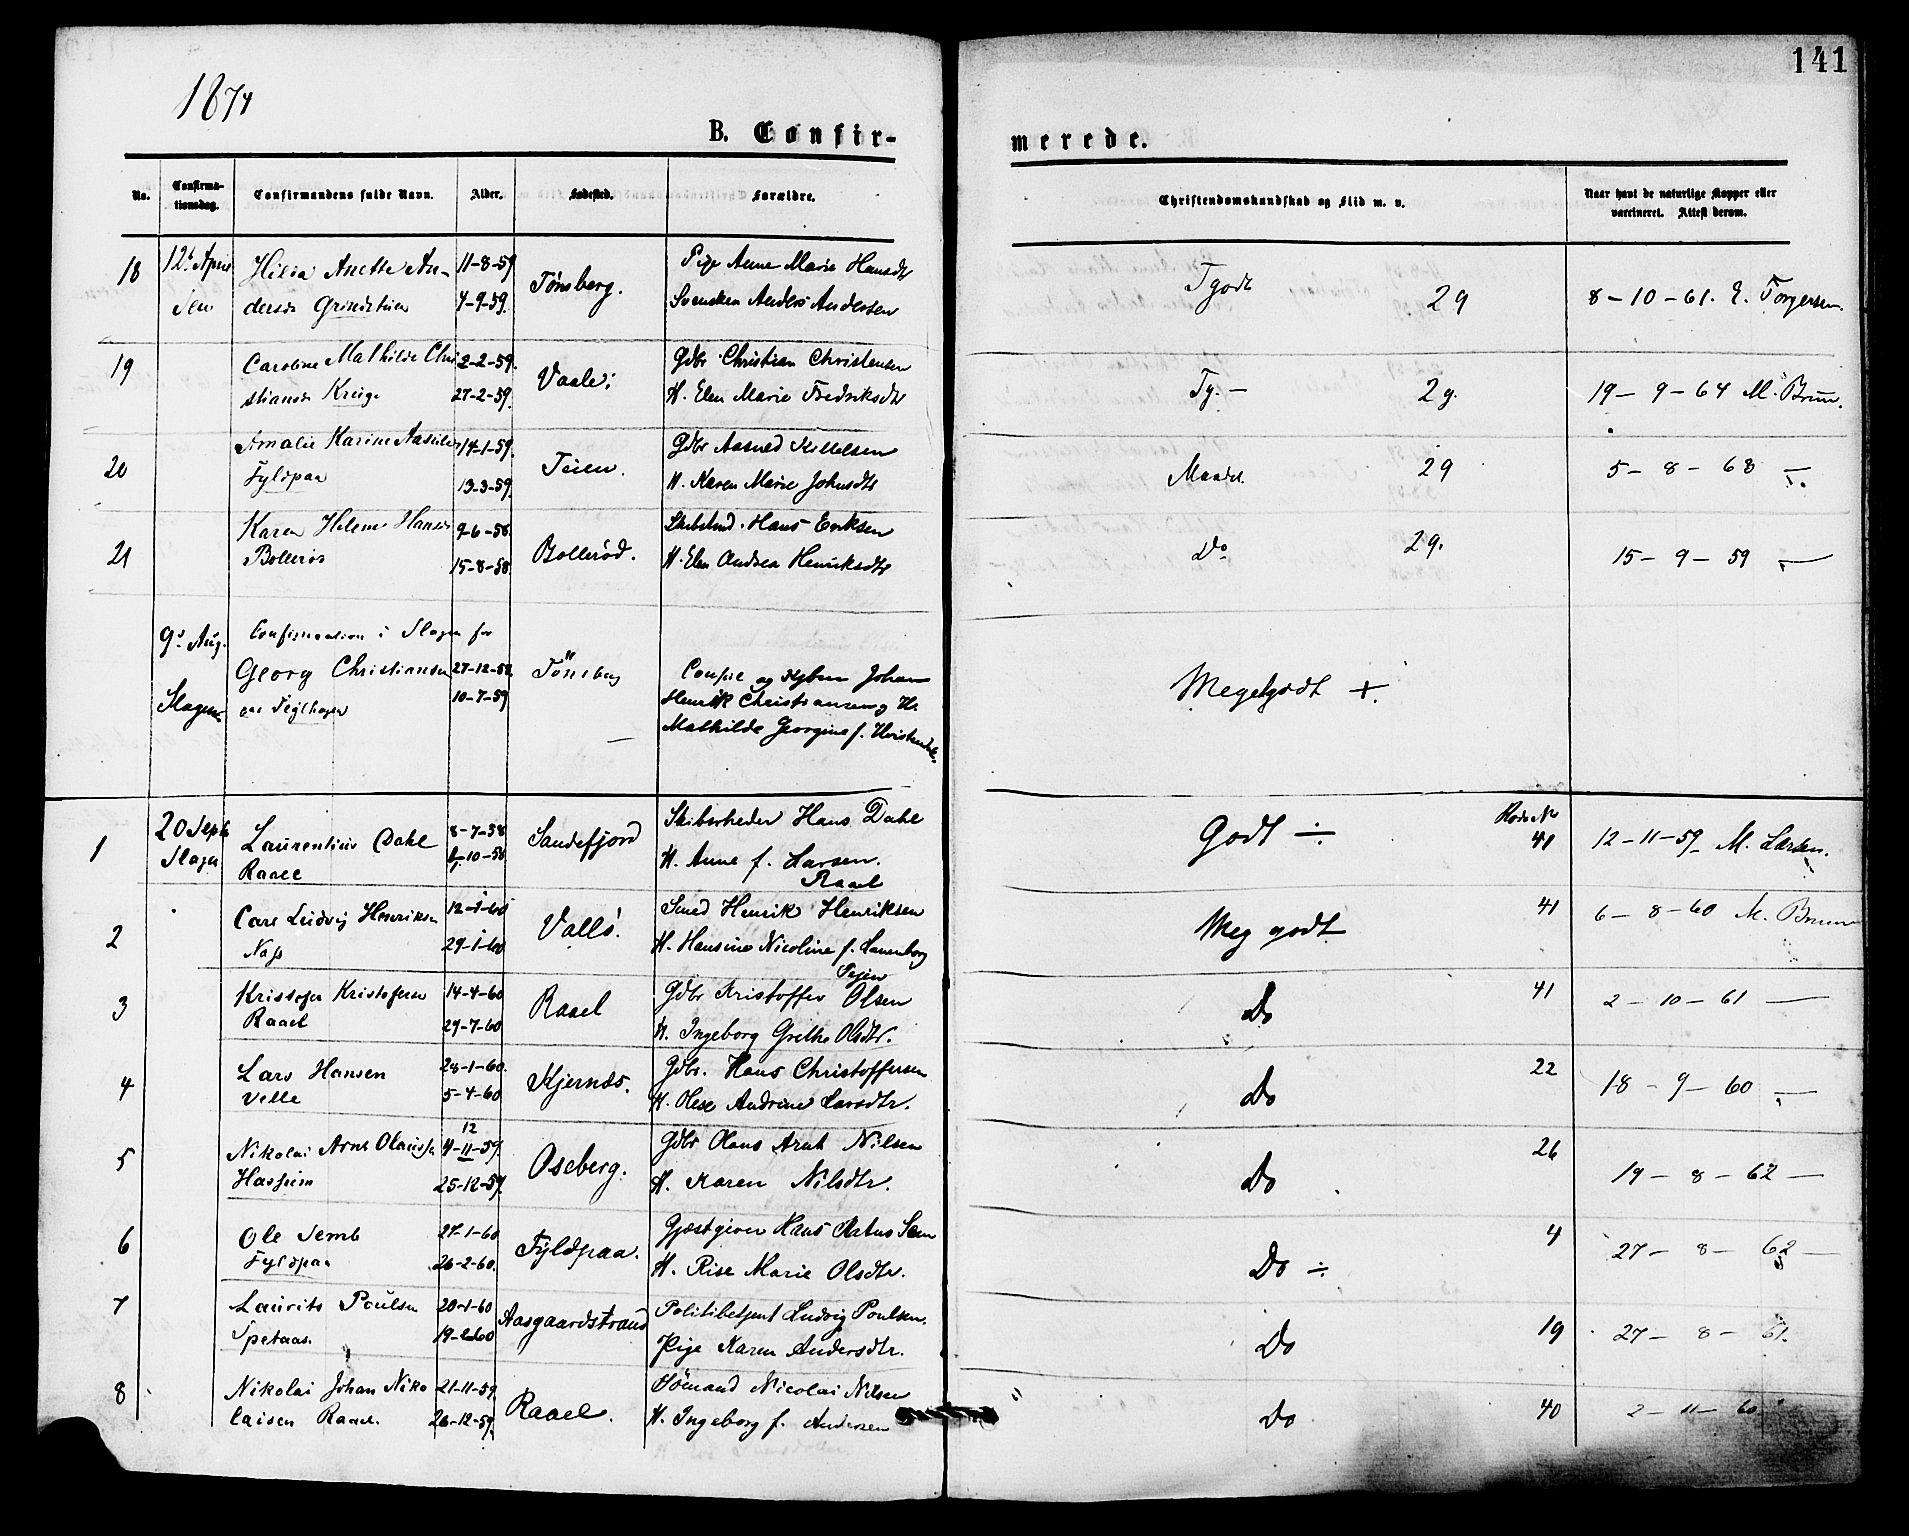 141
1874
B. Confir-
merede.
No.
Confirma-
tionsdag.
Confirmandens fulde Navn.
Alder.
Fødested.
Forældre.
Christendomskundskab og Flid m. v.
Naar havt de naturlige Kopper eller
vaccineret. Attest derom.
18 12t April Anette An- 11-8-59 Tønsberg. Pige Anne Marie Hansdt Tgodt 29 8-10-61. E. Torgersen.
4-9-59. Svensken Anders Andersen
19 Caroline Mathilde Chri 2-2-59. Vaale Gdbr Christian Christensen Tg. - 29. 19-9-64 M. Bruun.
stiansd 27-2-59. H. Elen Marie Fredriksdtr
20 Amalie Karine 14-1-59. Teien. Gdbr Kittelsen Maadel. 29 5-8-68 -
Fyldpaa 13-3-59. H. Karen Marie Johnsdtr
21 Karen Helene Hansd 9-6-58. Bollerød. Hans Eriksen Do 29. 15-9-59 -
15-8-58 H. Elen Andrea Henriksdtr
9d Aug. Confirmation i Slagen for
Georg Christiansen 27-12-58 Tönsberg Johan Megetgodt +
Slagen 10-7-59 Henrik Christiansen og H.
Mathilde Georgine f.
20 Sept Skibsrheder Hans Dahl Rode No
1 Slagen Laurentius Dahl 8-7-58 Sandefjord Godt ÷ 41 12-11-59 M. Larsen.
Raael 10-58 H. Anne f. Larsen.
Raael
2 Carl Ludvig Henriksen 12-1-60 Vallö. Smed Henrik Henriksen Meg godt 41 6-8-60 M. Bruun
29-1-60 H. Hansine Nicoline f.
3 Kristofersen 14-4-60 Raael Gdbr Kristoffer Olsen Do 41 2-10-61 -
Raael 29-7-60 H. Ingeborg Grethe Olsdtr.
4 Lars Hansen 28-1-60. Kjernæs. Gdbr. Hans Christoffersen Do 22 18-9-60 -
Velle 5-4-60 H. Andrine Larsdtr.
12
5 Nikolai Arnt 4-11-59. Oseberg. Gdbr Arnt Nilsen Do 26 19-8-62 -
25-12-59. H. Karen Nilsdtr.
6 Ole Semb 27-1-60 Fyldpaa. Gjæstgiver Hans Do ÷ 4 27-8-62 -
Fyldpaa 26-2-60. H. Marie Olsdtr.
7 Laurits Poulsen 20-1-60 Aasgaardstrand Politibetjent Ludvig Poulsen. Do 19 27-8-61.
Spetaas. Pige Karen Andersdtr.
8 Nikolai Johan Niko 21-11-59. Raael. Sömand Nicolai Nilsen Do 40 2-11-60
laisen Raael. 26-12-59. H. Ingeborg f. Andersen